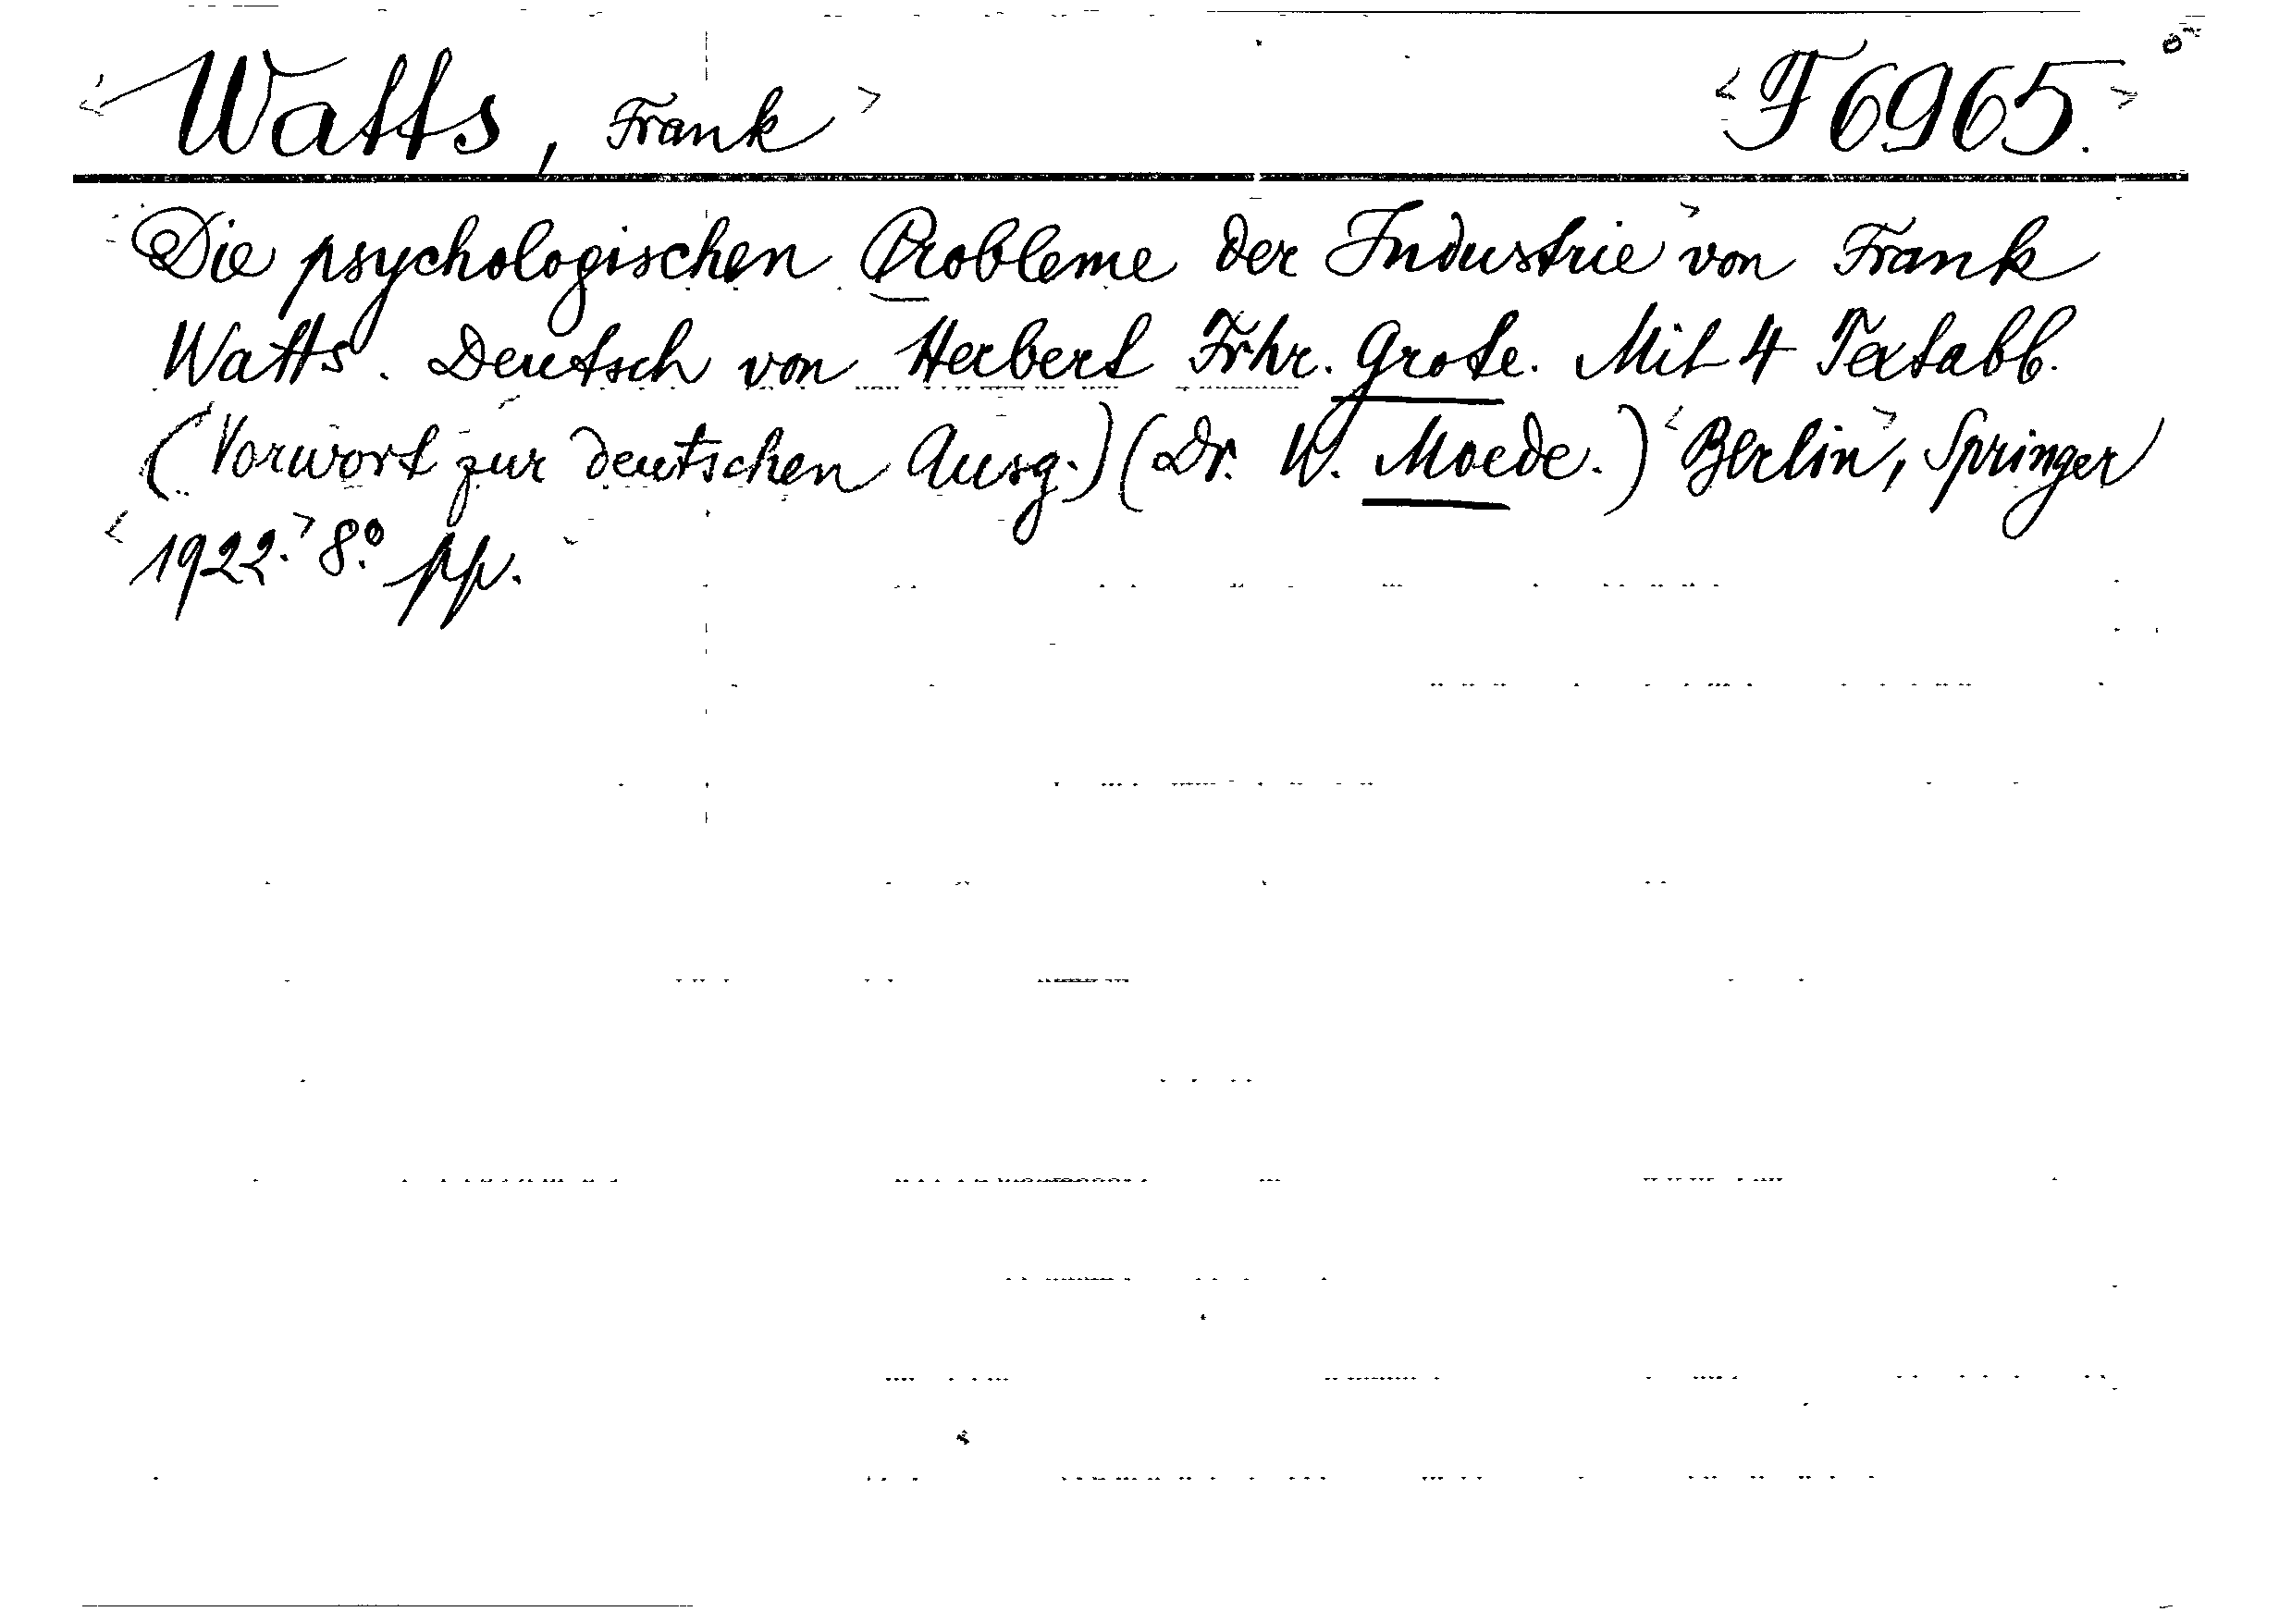 <Watts, Frank> <F 6965.>
Die psychologischen Probleme der Industrie> von Frank
Watts. Deutsch von Herbert Frhr. Grote. Mit 4 Textabb.
(Vorwort zur deutschen Ausg.) (Dr. W. Moede.) <Berlin>, Springer
<1922.> 8.º pp.